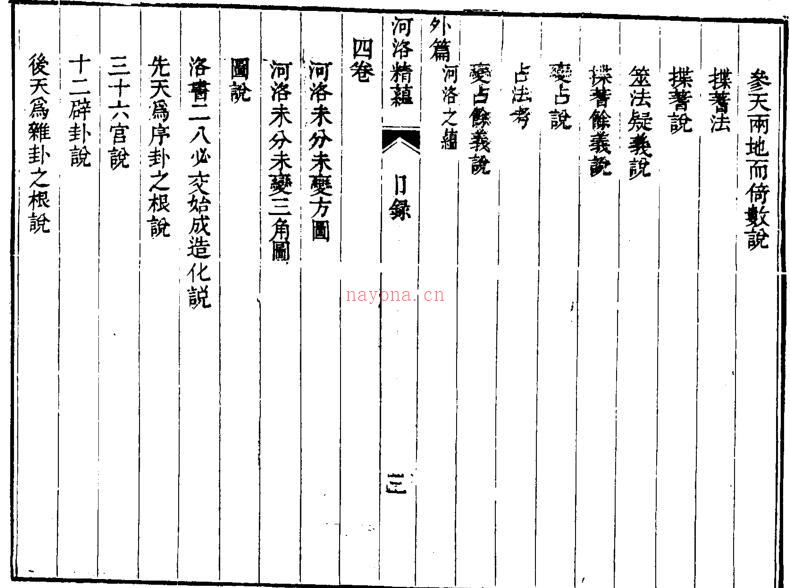 參天兩地而倚數說
揲蓍法
揲蓍說
筮法疑義說
揲蓍餘義說
變占說
占法考
變占餘義說
外篇
河洛之蘊
河洛精蘊
目錄
三
四卷
河洛未分未變方圖
河洛未分未變三角圖
圖說
洛書二八必交始成造化説
先天爲序卦之根說
三十六宮說
十二辟卦說
後天爲雜卦之根說
nayona.cn